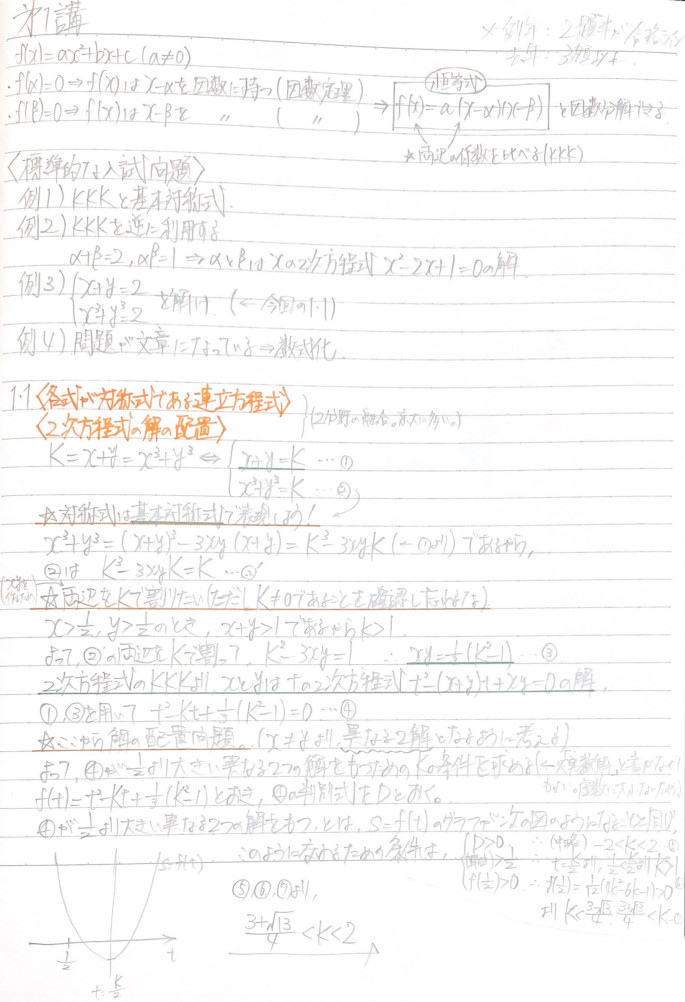 第1講
※例年:2題半が合格ライン
去年:3題以上
f(x)=ax²+bx+c (a≠0)
・f(α)=0⇒f(x)はx-αを因数に持つ(因数定理)
・f(β)=0⇒f(x)はx-βを 〃 ( 〃 )
恒等式
⇒ f(x)=a(x-α)(x-β) と因数分解できる
☆両辺の係数を比べる(KKK)
〈標準的な入試問題〉
例1) KKKと基本対称式.
例2) KKKを逆に利用する
α+β=2, αβ=1 ⇒ αとβはxの2次方程式 x²-2x+1=0の解.
例3) { x+y=2
x³+y³=2 を解け. (←今回の1・1)
例4) 問題が文章になっている⇒数式化.
1・1 〈各式が対称式である連立方程式〉
〈2次方程式の解の配置〉
(2分野の融合。京大に多い。)
K=x+y=x³+y³ ⇔ { x+y=K …①
x³+y³=K …②
☆対称式は基本対称式で表現しよう!
x³+y³=(x+y)³-3xy(x+y)=K³-3xyK (←①より) であるから,
②は K³-3xyK=K …②'
☆両辺をKで割りたい(ただし K≠0であることを確認しなければ)
x>1/2, y>1/2のとき, x+y>1であるからK>1.
よって, ②'の両辺をKで割って, K²-3xy=1 ∴ xy=1/3(K²-1) …③
2次方程式のKKKより, xとyはtの2次方程式 t²-(x+y)t+xy=0の解,
①,③を用いて t²-Kt+1/3(K²-1)=0 …④
☆ここから解の配置問題。(x≠yより, 異なる2解となるように考える)
よって, ④が1/2より大きい異なる2つの解をもつためのKの条件を求める
f(t)=t²-Kt+1/3(K²-1)とおき, ④の判別式をDとおく。
④が1/2より大きい異なる2つの解をもつ、とは, S=f(t)のグラフが
このように交わるための条件は,
{ D>0 ∴(中略) -2<K<2 …⑤
(軸)>1/2 ∴ t=K/2より, 1/2<K/2より K>1
f(1/2)>0 ∴ f(1/2)=1/12(4K²-6K-1)>0
より K<(3-√13)/4, (3+√13)/4<K
⑤,⑥,⑦より,
(3+√13)/4<K<2
S=f(t)
1/2
t
t=K/2